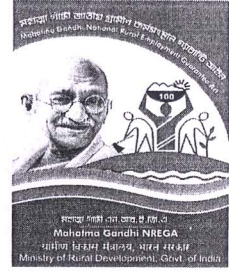 মহাত্মা গান্ধী জাতীয় গ্রামীণ কর্মসংস্থান গ্যারান্টি আইন
Mahatma Gandhi National Rural Employment Guarantee Act
100
মহাত্মা গান্ধী এন.আর.ই.জি.এ
Mahatma Gandhi NREGA
ग्रामीण विकास मंत्रालय, भारत सरकार
Ministry of Rural Development, Govt. of India